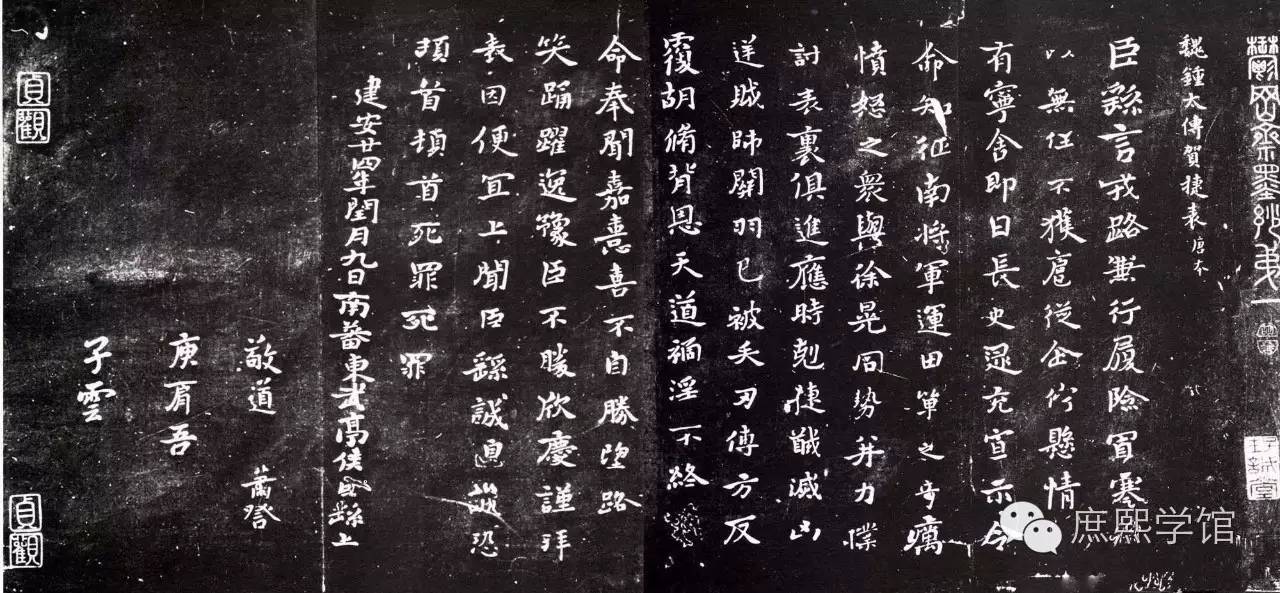 鬱岡齋墨妙第一
魏鍾太傅賀捷表 唐本
臣繇言戎路兼行履險冒寒臣
以無任不獲扈從企佇懸情無
有寧舍即日長史逯充宣示令
命知征南將軍運田單之奇厲
憤怒之衆與徐晃同勢并力撲
討表裏俱進應時剋捷馘滅凶
逆賊帥關羽已被矢刃傅方反
覆胡脩背恩天道禍淫不終厥
命奉聞嘉憙喜不自勝望路
笑踊躍逸豫臣不勝欣慶謹拜
表因便宜上聞臣繇誠惶誠恐
頓首頓首死罪死罪
建安廿四年閏月九日南蕃東武亭侯臣繇上
敬道
蕭詧
庾肩吾
子雲
貞觀
貞觀
庶熙学馆